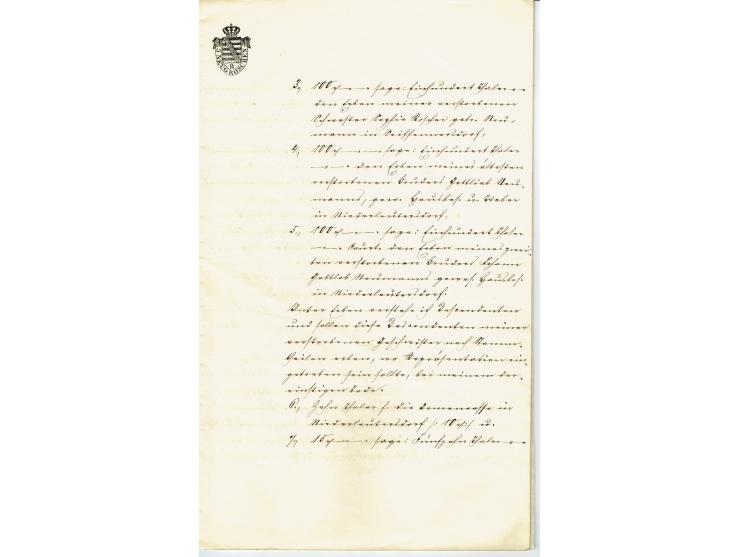 NEUGROSCHEN
3., 100 — sage: Einhundert Thaler
den Erben meiner verstorbenen
Schwester Sophie geb. Neu-
mann in Seifhennersdorf,
4., 100 — sage: Einhundert Thaler
den Erben meines ältesten
verstorbenen Bruders Gottlieb Neu-
manns, gew. Hausbes. u. Weber
in Niederleutersdorf,
5., 100 — sage: Einhundert Thaler
Court. den Erben meines zwei-
ten verstorbenen Bruders Johann
Gottlob Neumanns gewes. Hausbes.
in Niederleutersdorf.
Unter Erben verstehe ich Descendenten
und sollen diese Descendenten meiner
verstorbenen Geschwister nach Stamm-
theilen erben, wo Repräsentation ein-
getreten sein sollte, bei meinem der-
einstigen Tode.
6., Zehn Thaler f. die Armencasse in
Niederleutersdorf /: 10 :/ u.
7., 15 — sage: Fünfzehn Thaler